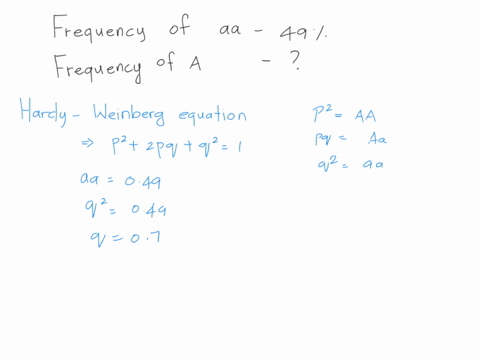 Frequency of aa - 49%
Frequency of A - ?
Hardy - Weinberg equation
⇒ p² + 2pq + q² = 1
aa = 0.49
q² = 0.49
q = 0.7
p² = AA
pq = Aa
q² = aa